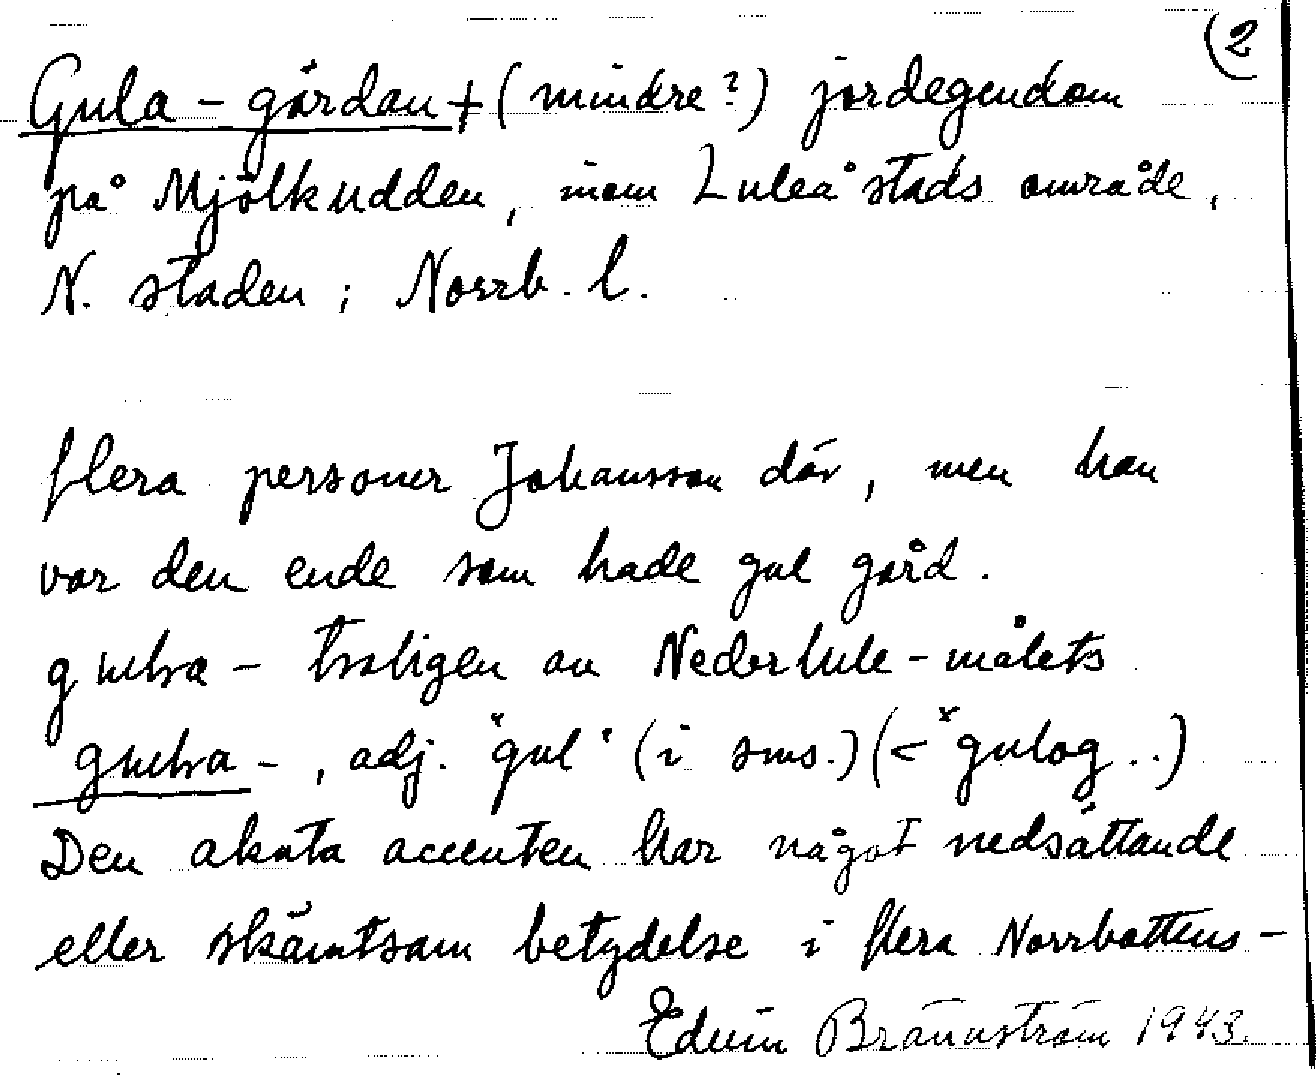 (2
Gula-gårdan + (mindre?) jordegendom
på Mjölkudden, inom Luleå stads område,
N. staden; Norrb. l.
flera personer Johansson där, men han
var den ende som hade gul gård.
troligen av Nederlule-målets
adj. "gul" (i sms.) (< *gulog..)
Den akuta accenten har något nedsättande
eller skämtsam betydelse i flera Norrbottens-
Edvin Brännström 1943.